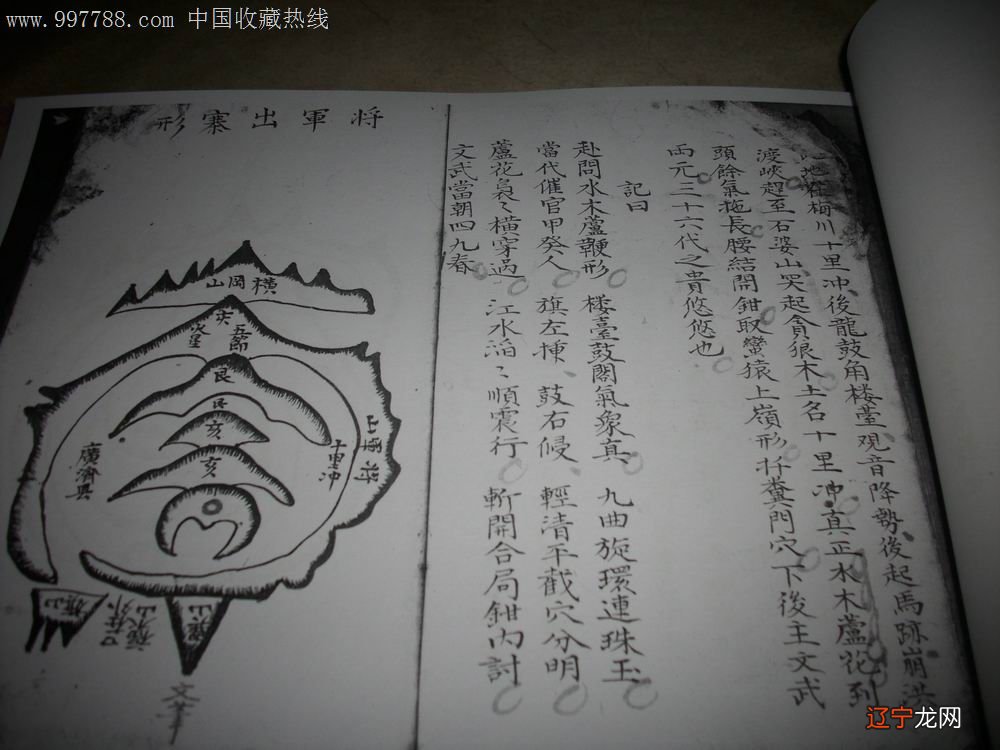 www.997788.com 中国收藏热线
地在梅川十里冲後龍鼓角楼臺观音降勢後起馬跡崩洪
渡峽趕至石婆山突起貪狼木土名十里冲真正水木蘆花到
頭餘氣拖長腰結開鉗取蠻猿上嶺形扦糞門穴下後主文武
両元三十六代之貴悠悠也
記曰
赴問水木蘆鞭形 楼臺鼓閣氣象真 九曲旋環連珠玉
當代催官甲癸人 旗左 鼓右侵 輕清平截穴分明
蘆花裊〻橫穿過 江水滔〻順震行 斬開合局鉗內討
文武當朝四九春
将軍出寨形
橫岡山
五節
艮
亥
亥
将軍山
十里冲
廣濟縣
旗山
文筆
辽宁龙网